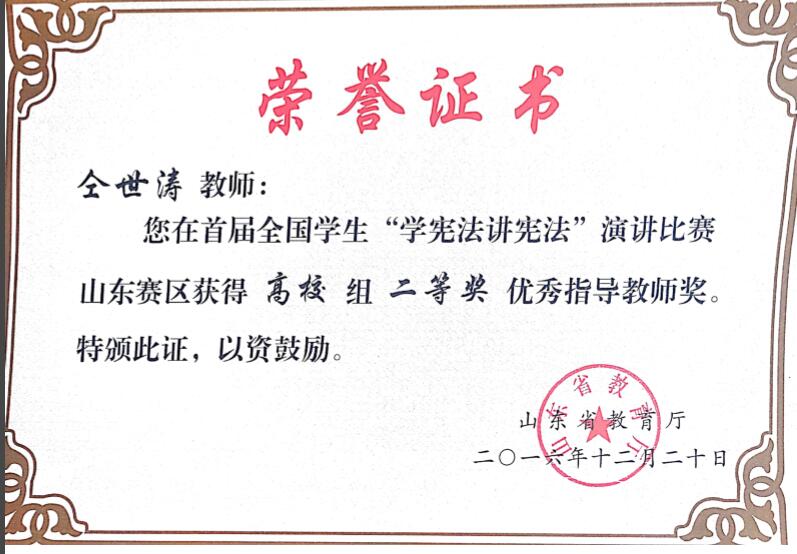 荣誉证书
仝世涛 教师：
您在首届全国学生“学宪法讲宪法”演讲比赛
山东赛区获得 高校 组 二等奖 优秀指导教师奖。
特颁此证，以资鼓励。
山东省教育厅
山东省教育厅
二〇一六年十二月二十日